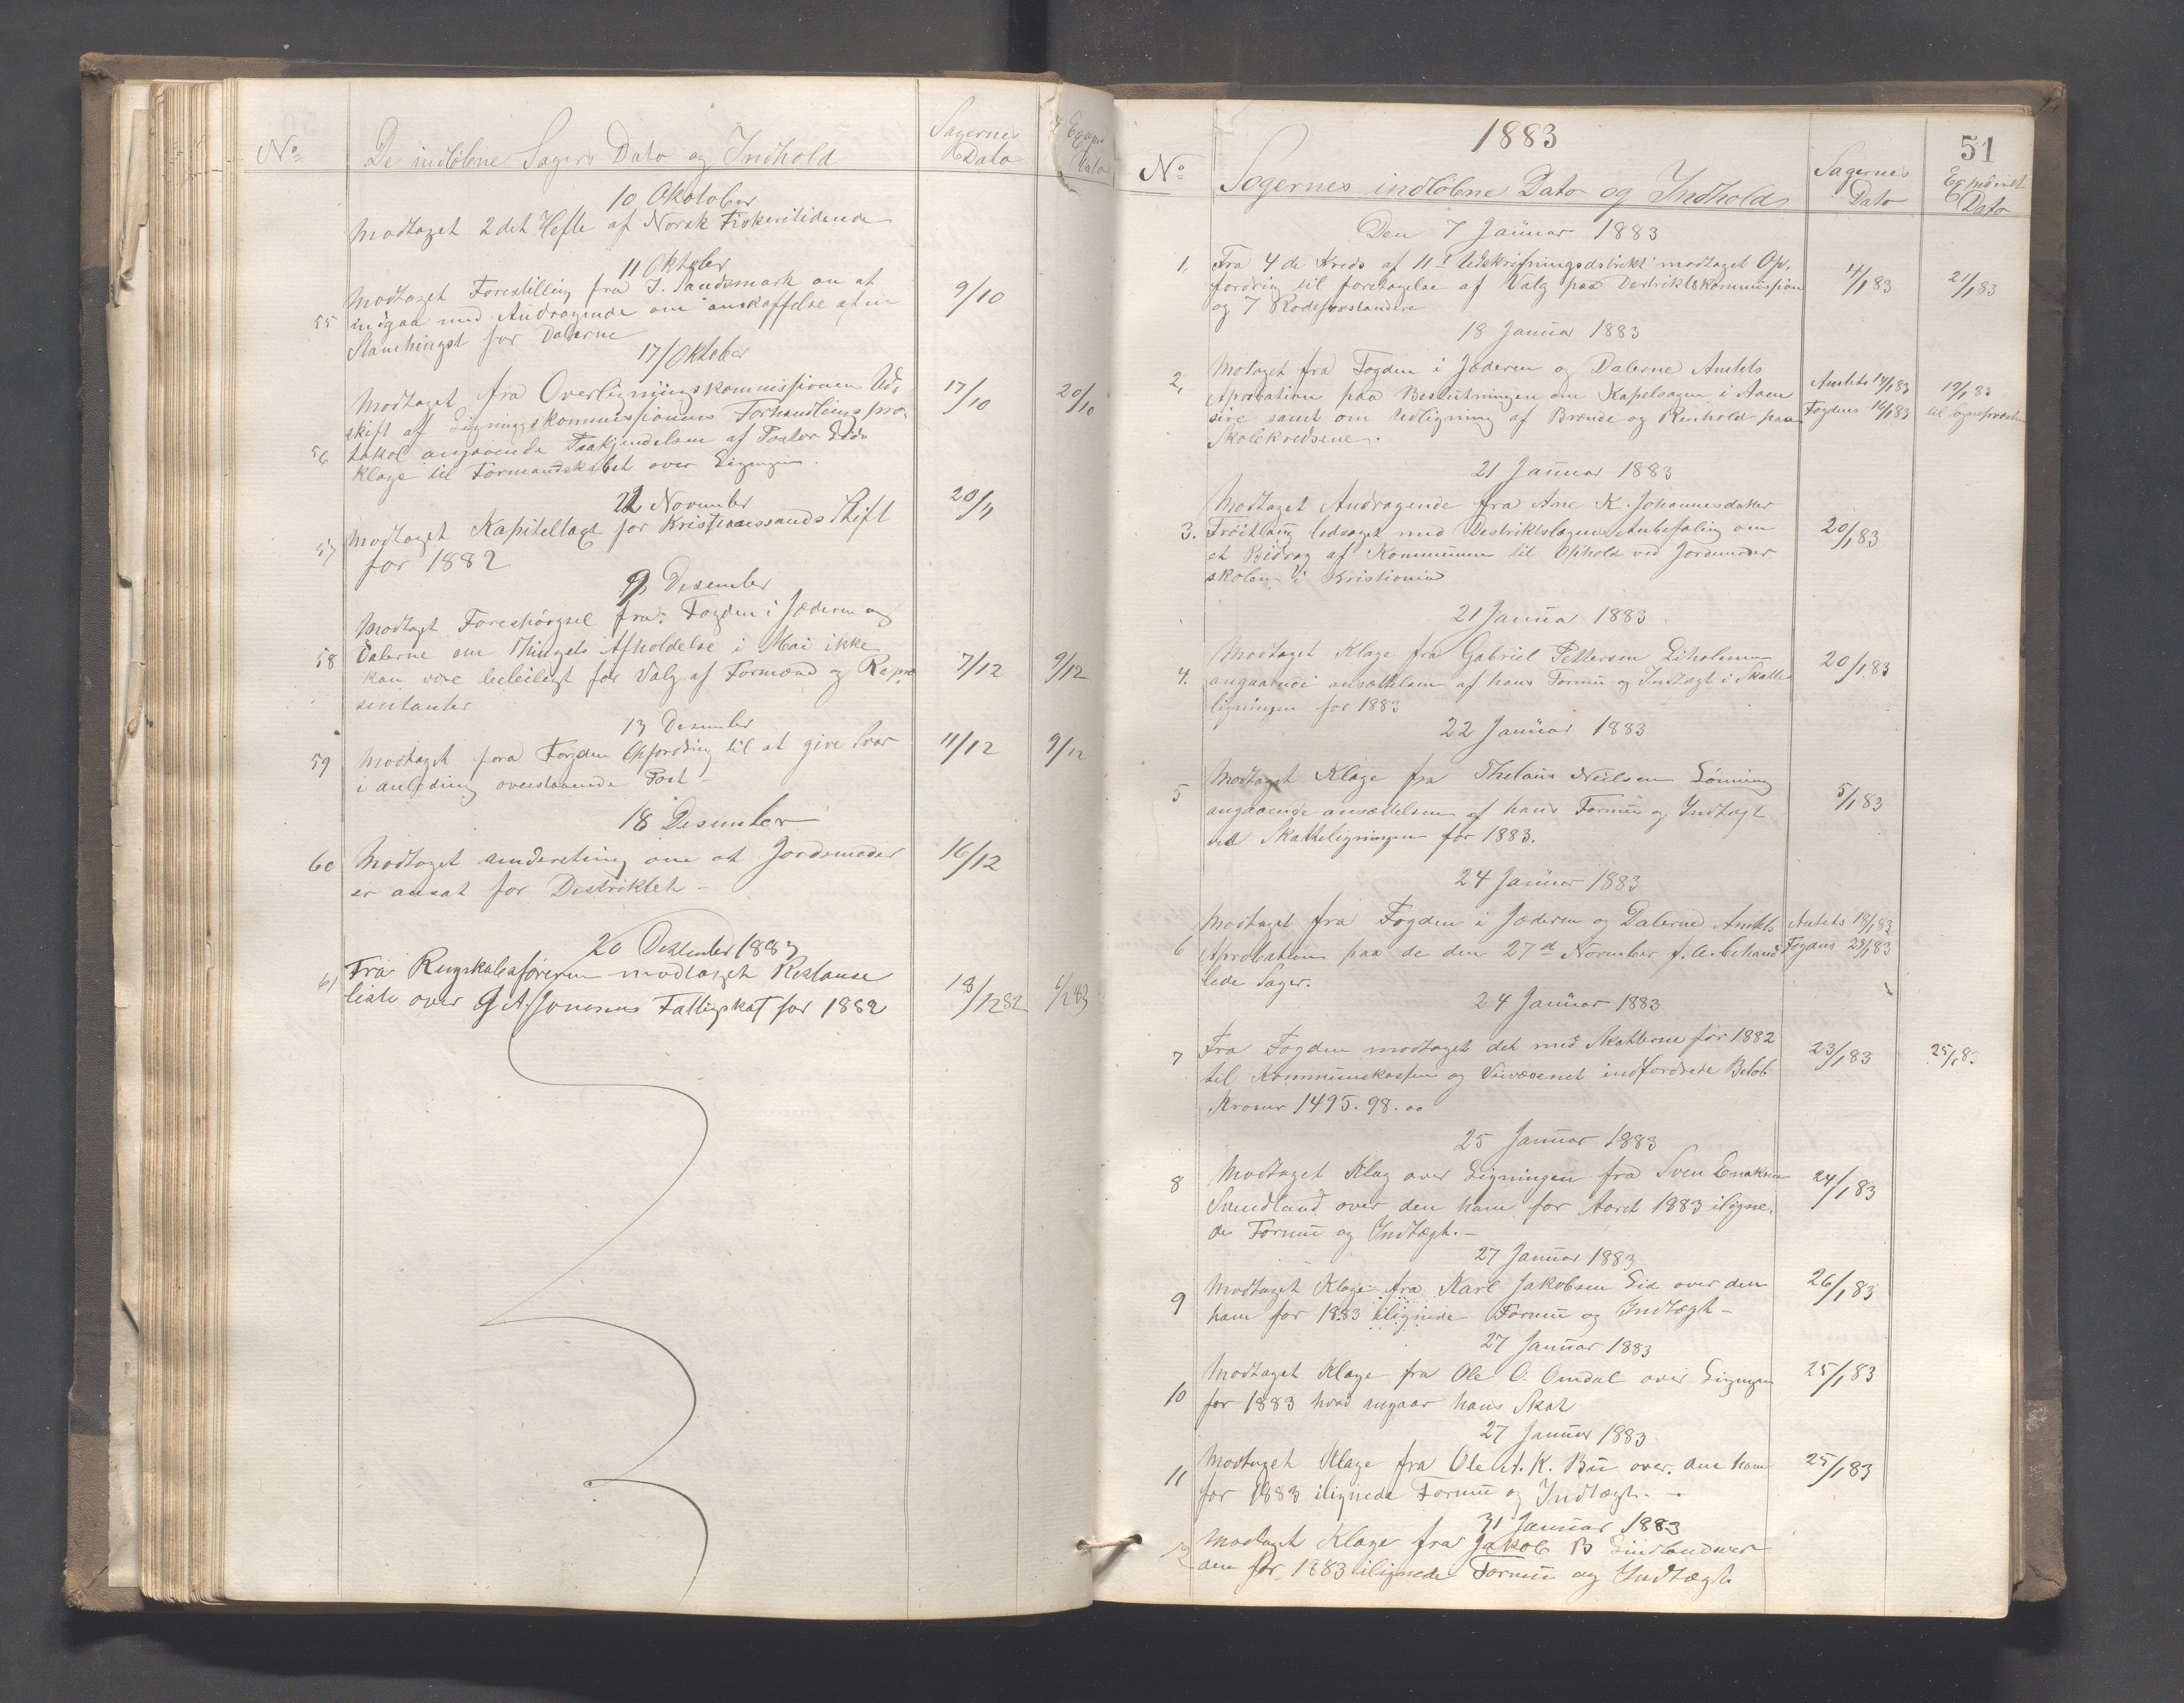 No
De indløbne Sagers Dato og Indhold
Sagernes
Dato
Exped
Dato
10 Oktober
Modtaget 2det Hefte af Norsk Fiskeritidende
11 Oktober
Modtaget Forestilling fra J. Sandsmark om at
55 indgaa med Andragende om anskaffelse af en 9/10
Stamhingst for Dalerne
17/Oktober
Modtaget fra Overligningskommissionen Ud- 17/10 20/10
skift af Ligningskommissionens Forhandlingspro
56 tokol angaaende Paakjendelsen af Pastor
klage til Formandskabet over Ligningen.
22 November
57 Modtaget Kapiteltaxt for Kristianssands Stift 20/11
for 1882
9 Desember
Modtaget Forespørgsel fra Fogden i Jæderen og
58 Dalerne om Thingets Afholdelse i Mai ikke
kan være beleiligt for Valg af Formænd og Repræ 7/12 9/12
sentanter
13 Desember
59 Modtaget fora Fogden Opfordring til at give Svar 11/12 9/12
i anledning overstaaende Post –
18 Desember
60 Modtaget underetning om at Jordemoder 16/12
er ansat for Destriktet –
20 Desember 1883
61 Fra Regnskabsføreren modtaget Restanse
liste over G. A. Jonesens Fattigskat for 1882 18/12 82 4/1 83
1883
51
No
Sagernes indløbne Dato og Indhold
Sagernes
Dato
Expederet
Dato
Den 7 Januar 1883
1, Fra 4de Kreds af 11te Udskrifningsdistrikt modtaget Op-
fordring til foretagelse af Valg paa Destriktskommission 4/1 83 21/1 83
og 7 Rodeforstandere
18 Januar 1883
2, Motaget fra Fogden i Jæderen og Dalerne Amtets
Aprobation paa Beslutningen om Kapelsagen i Aaen Amtets 13/1 83 19/1 83
sire samt om Udligning af Brænde og Renhold paa Fogdens 16/1 83 til Sognepræsten
Skolekredsene.
21 Januar 1883
Modtaget Andragende fra Ane K. Johannesdatter
3. Frøitlaug ledsaget med Destriktslægens Anbefaling om 20/1 83
et Bidrag af Kommunen til Ophold ved Jordemoder
skolen i Kristiania
21 Januar 1883
Modtaget Klage fra Gabriel Pettersen Liholmen
4. angaaende ansættelsen af hans Formue og Indtægt i Skatte 20/1 83
ligningen for 1883
22 Januar 1883
5 Modtaget Klage fra Thelaus Neilsen Lønning
angaaende ansættelsen af hans Formue og Indtægt 5/1 83
ved Skatteligningen for 1883.
24 Januar 1883
Modtaget fra Fogden i Jæderen og Dalerne Amtets Amtets 18/1 83
6 Aprobation paa de den 27d November f. A. behand Fogdens 23/1 83
lede Sager.
24 Januar 1883
7 Fra Fogden modtaget det med Skatterne for 1882 23/1 83 25/1 83
til Kommunekassen og Veivæsenet indfordrede Beløb
Kroner 1495.98.
25 Januar 1883
8 Modtaget Klag over Ligningen fra Sven Enoksen 24/1 83
Svendland over den ham for Aaret 1883 iligne-
de Formue og Indtægt. –
27 Januar 1883
9 Modtaget Klage fra Karl Jakobsen Eid over den 26/1 83
ham for 1883 ilignede Formue og Indtægt –
27 Januar 1883
10 Modtaget Klage fra Ole O. Omdal over Ligningen 25/1 83
for 1883 hvad angaar hans Skat
27 Januar 1883
11 Modtaget Klage fra Ole A. K. Bu over den ham 25/1 83
for 1883 ilignede Formue og Indtægt. –
31 Januar 1883
12 Modtaget Klage fra Jakob B
den for 1883 ilignede Formue og Indtægt